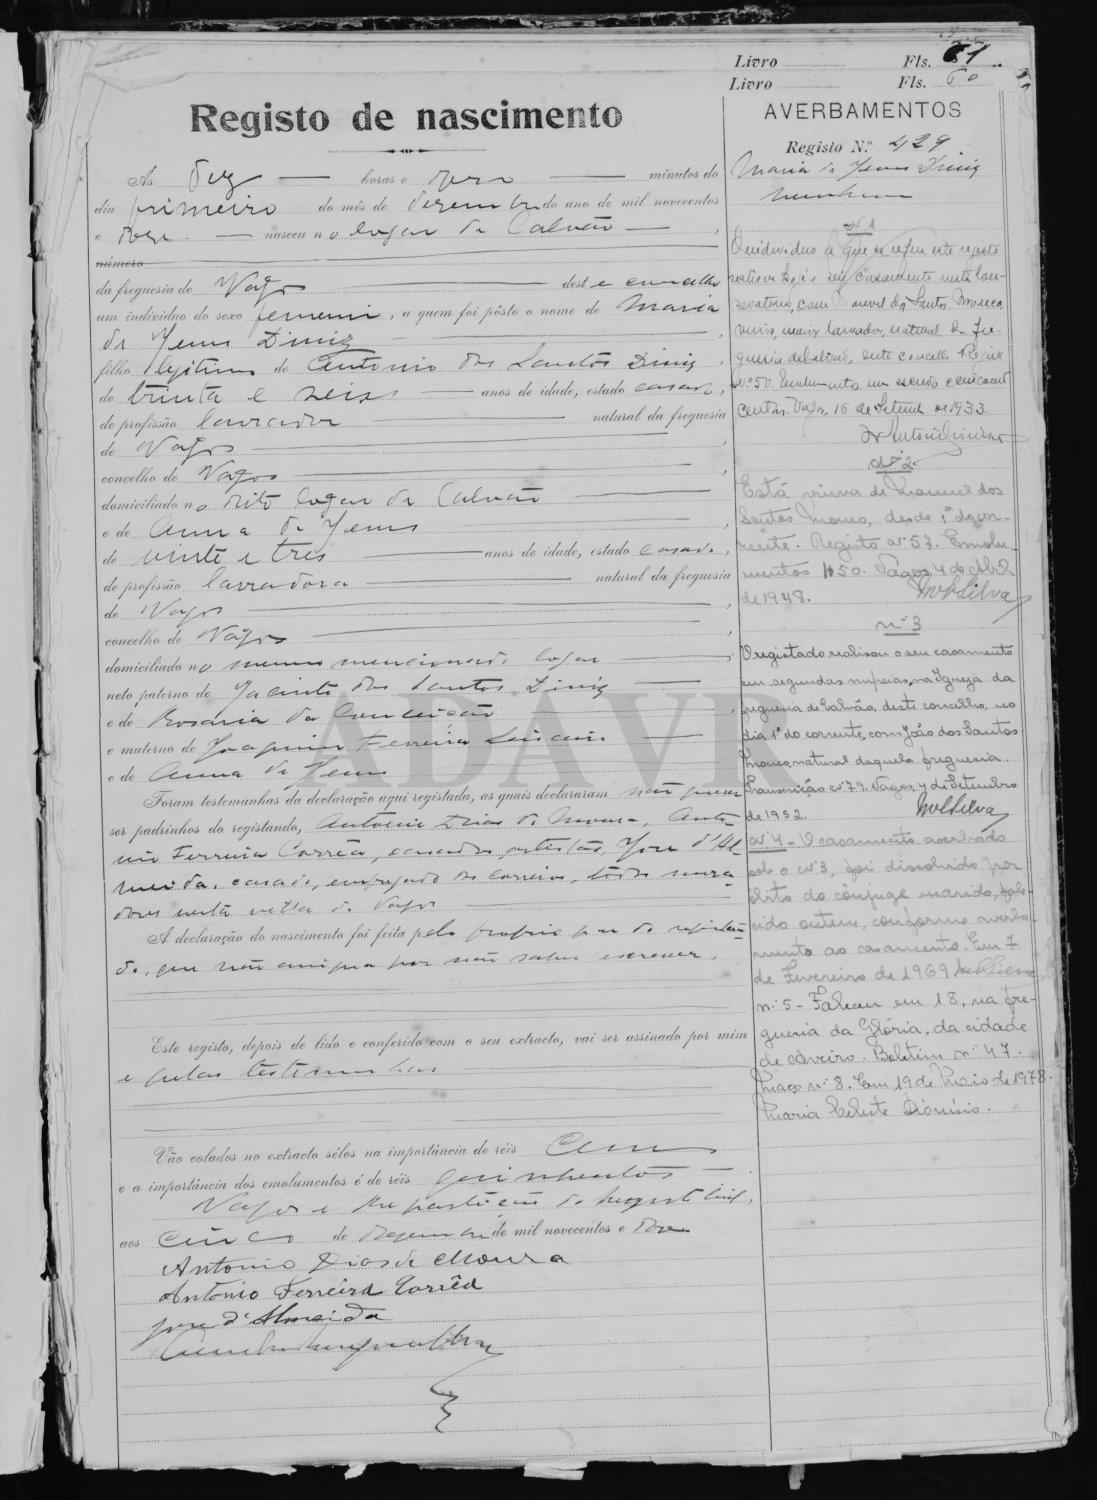 Livro Fls. 61
Livro Fls. 60
Registo de nascimento
AVERBAMENTOS
Registo N.º 429
Maria de Jesus Diniz
Às dez horas e zero minutos do
dia primeiro do mês de dezembro do ano de mil novecentos
e doze nasceu no logar de Calvão
número
da freguesia de Vagos deste concelho
um indivíduo do sexo feminino, a quem foi pôsto o nome de Maria
de Jesus Diniz
filho legitimo de Antonio dos Santos Diniz
de trinta e seis anos de idade, estado casado,
de profissão lavrador natural da freguesia
de Vagos
concelho de Vagos
domiciliado no dito logar de Calvão
e de Anna de Jesus
de vinte e tres anos de idade, estado casada,
de profissão lavradora natural da freguesia
de Vagos
concelho de Vagos
domiciliado no mesmo mencionado logar
neto paterno de Jacinto dos Santos Diniz
e de Rosaria da Conceição
e materno de Joaquim Ferreira
e de Anna de Jesus
Foram testemunhas da declaração aqui registada, as quais declararam não
ser padrinhos do registando, Antonio Dias de Moura, Anto-
nio Ferreira Corrêa, casados, artistas, José d'Al-
meida, casado, empregado dos correios, todos mora-
dores nesta villa de Vagos
A declaração do nascimento foi feita pelo proprio pae do registan-
do, que não assigna por não saber escrever.
Este registo, depois de lido e conferido com o seu extracto, vai ser assinado por mim
e pelas testemunhas
Vão colados no extracto sêlos na importância de réis Cem
e a importância dos emolumentos é de réis quinhentos
Vagos e Repartição do Registo Civil,
aos cinco de dezembro de mil novecentos e doze
Antonio Dias de Moura
Antonio Ferreira Corrêa
José d'Almeida
Nº 1
O individuo a que se refere este registo
realisou hoje o seu casamento nesta Con-
servatoria, com Manuel dos Santos Manco,
lavrador, natural da fre-
guesia de Calvão, deste concelho. Registo
Nº 50. Emolumento um escudo e cincoenta
centavos. Vagos, 16 de Setembro de 1933.
Nº 2
Está viuva de Manuel dos
Santos Manco, desde 1º do cor-
rente. Registo nº 57. Emolu-
mentos 1$50. Vagos 4 de Abril
de 1948. MvbSilva
nº 3
O registado realisou o seu casamento
em segundas nupcias, na Igreja da
freguesia de Calvão, deste concelho, no
dia 1º do corrente, com João dos Santos
Manco, natural daquela freguesia.
Transcrição nº 79. Vagos, 4 de Setembro
de 1952. MvbSilva
Nº 4 - O casamento averbado
sob o nº 3, foi dissolvido por
óbito do cônjuge marido, fale-
cido ontem, conforme averba-
mento ao casamento. Em 7
de Fevereiro de 1969
nº 5 - Faleceu em 18, na fre-
guesia da Glória, da cidade
de Aveiro. Boletim nº 47.
Maço nº 8. Em 19 de Maio de 1978.
Maria Celeste Dionísio.
ADAVR